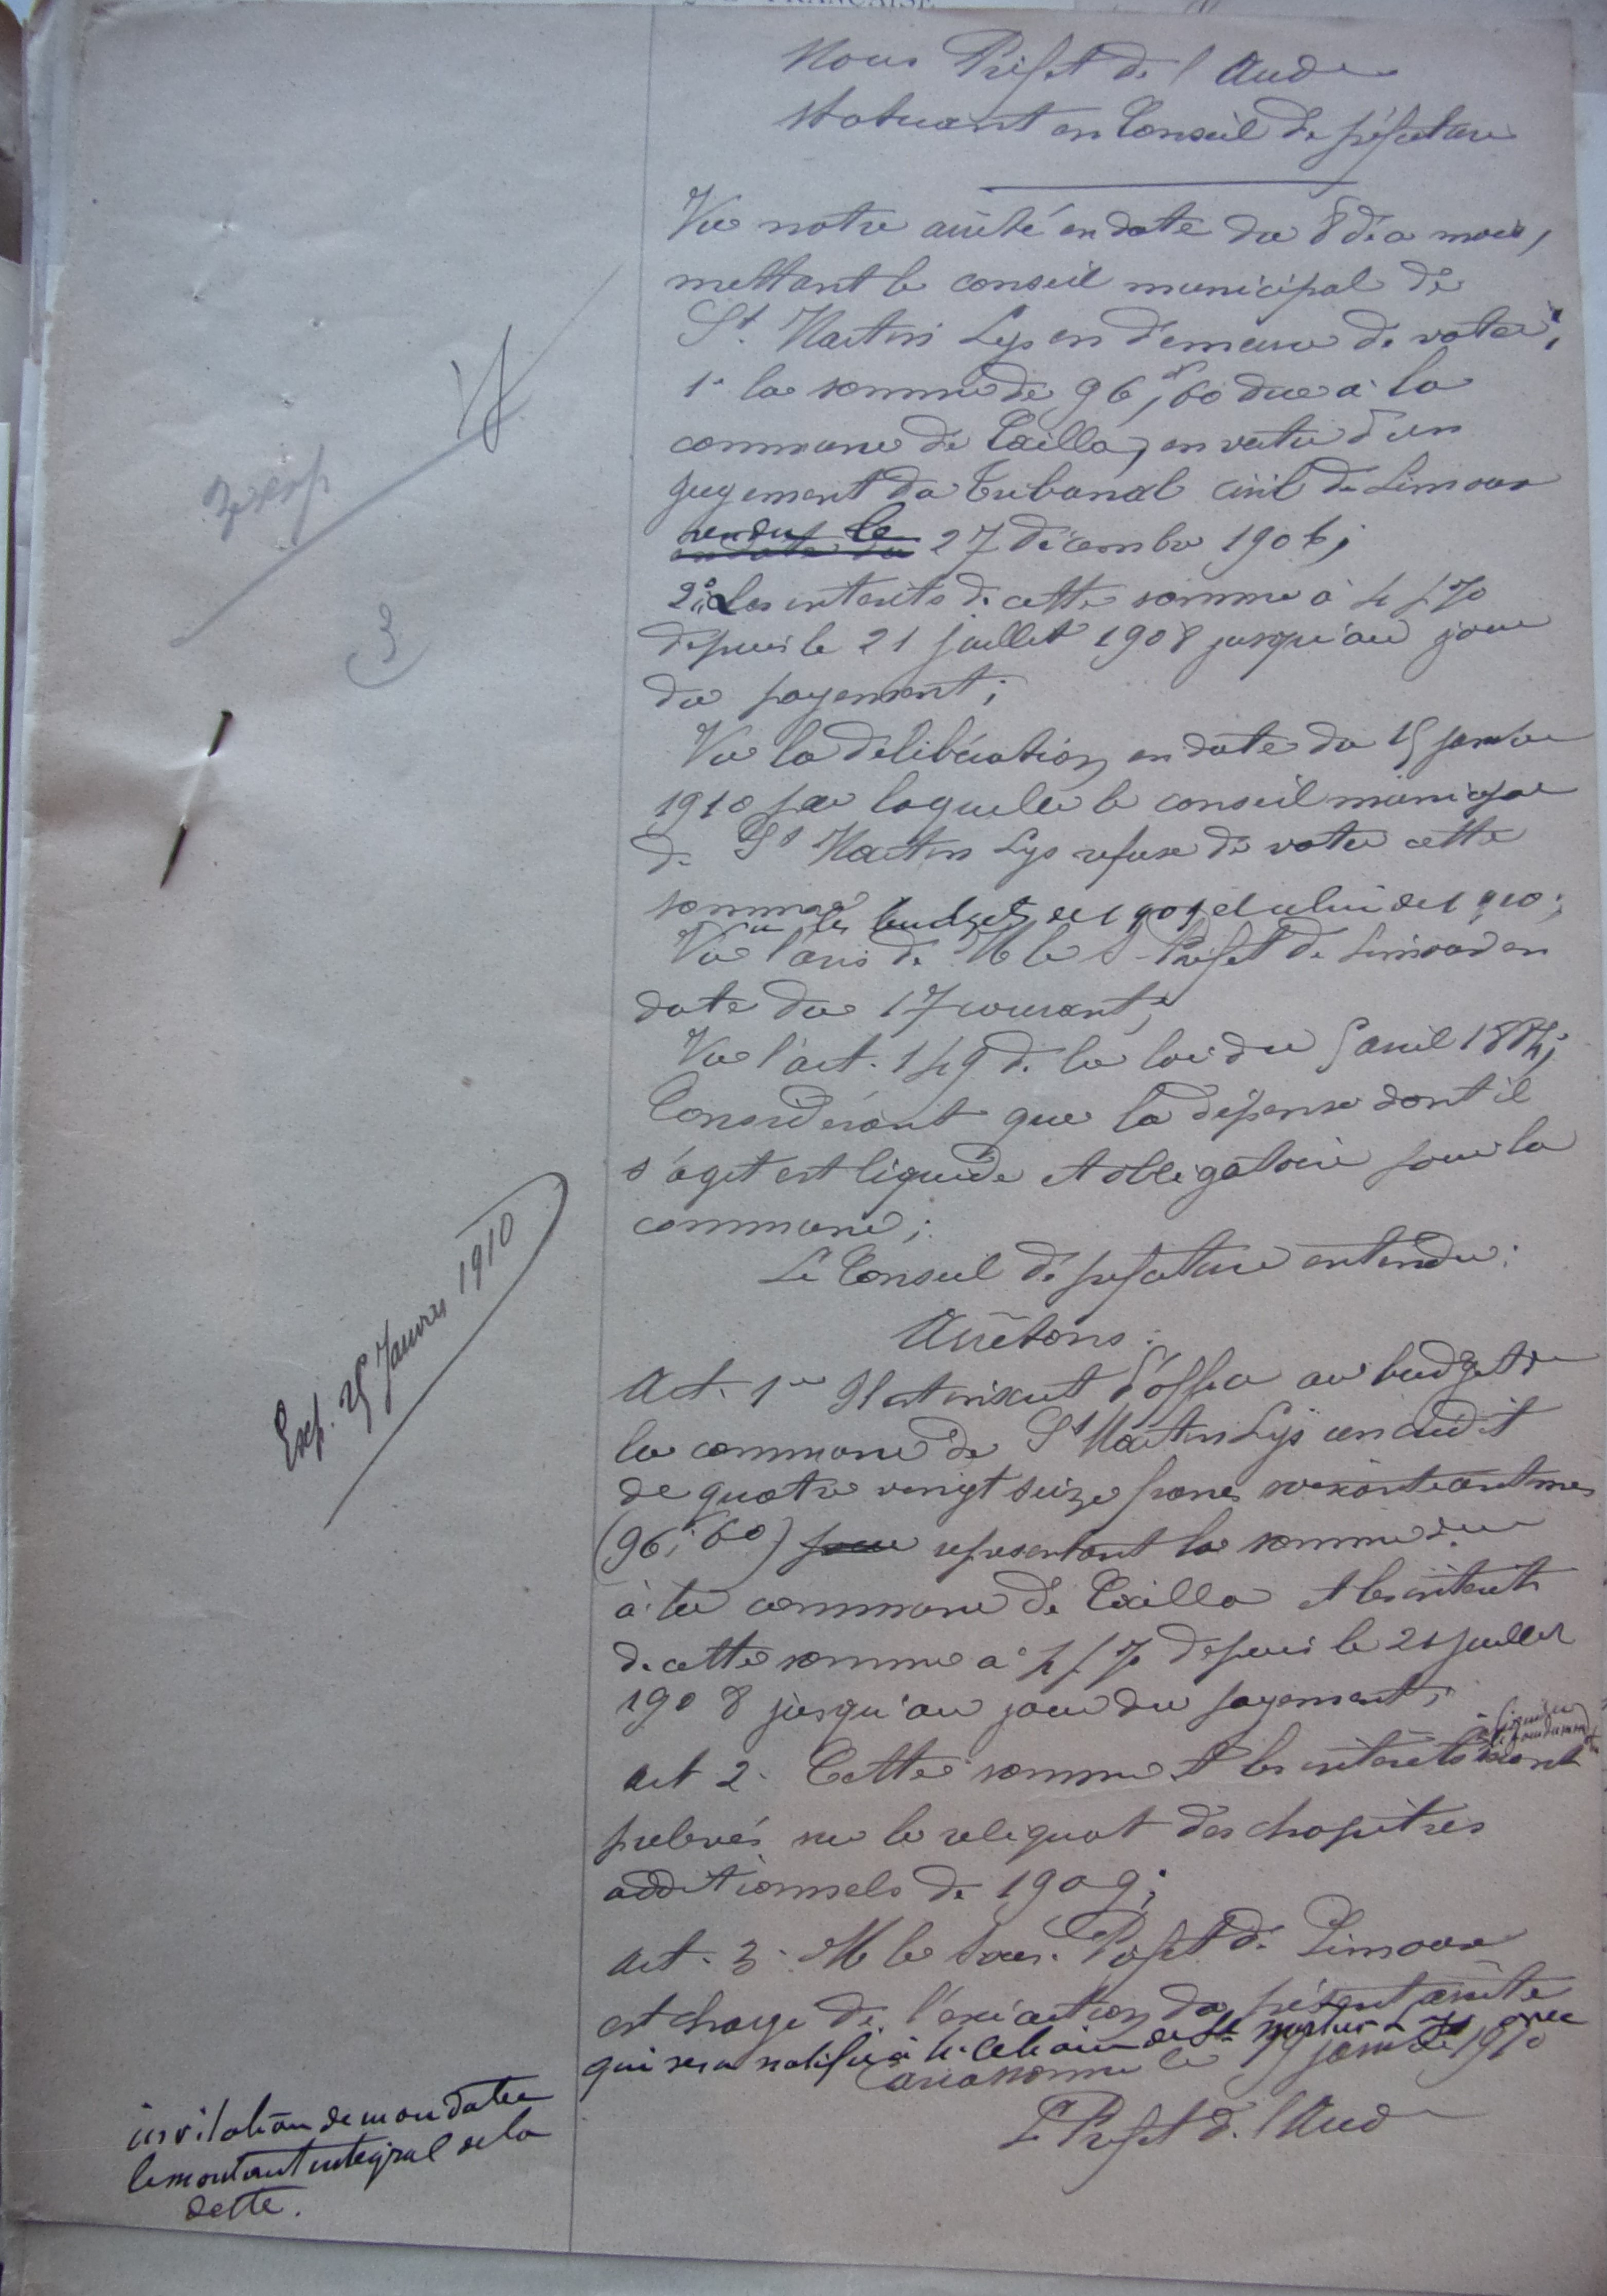 FRANÇAISE
Nous Préfet de l'Aude
Statuant en Conseil de préfecture
Vu notre arrêté en date du 8 de ce mois,
mettant le conseil municipal de
St Martin Lys en demeure de voter;
1° la somme de 96f,60 due à la
commune de Cailla, en vertu d'un
jugement du Tribunal civil de Limoux
rendu le
en date du 27 décembre 1906;
2° les intérêts de cette somme à 4 f %
depuis le 21 juillet 1908 jusqu'au jour
du payement;
Vu la délibération en date du 15 janvier
1910 par laquelle le conseil municipal
de St Martin Lys refuse de voter cette
somme
Vu les budgets de 1909 et celui de 1910;
Vu l'avis de M le S-Préfet de Limoux en
date du 17 courant;
Vu l'art. 149 de la loi du 5 avril 1884;
Considérant que la dépense dont il
s'agit est liquide et obligatoire pour la
commune;
Le Conseil de préfecture entendu:
Arrêtons:
Art. 1er Il est inscrit d'office au budget de
la commune de St Martin Lys un crédit
de quatre vingt seize francs soixante centimes
(96f,60) pour représentant la somme due
à la commune de Cailla et les intérêts
de cette somme à 4 f % depuis le 21 juillet
1908 jusqu'au jour du payement;
Art 2. Cette somme et les intérêts seront
prélevés sur le reliquat des chapitres
additionnels de 1909;
Art. 3. M le Sous-Préfet de Limoux
est chargé de l'exécution du présent arrêté
qui sera notifié à M. le Maire de St Martin Lys avec
Carcassonne le 19 janvier 1910
Le Préfet de l'Aude
3 exp
3
Exp. 25 Janvier 1910
invitation de mandater
le montant intégral de la
dette.